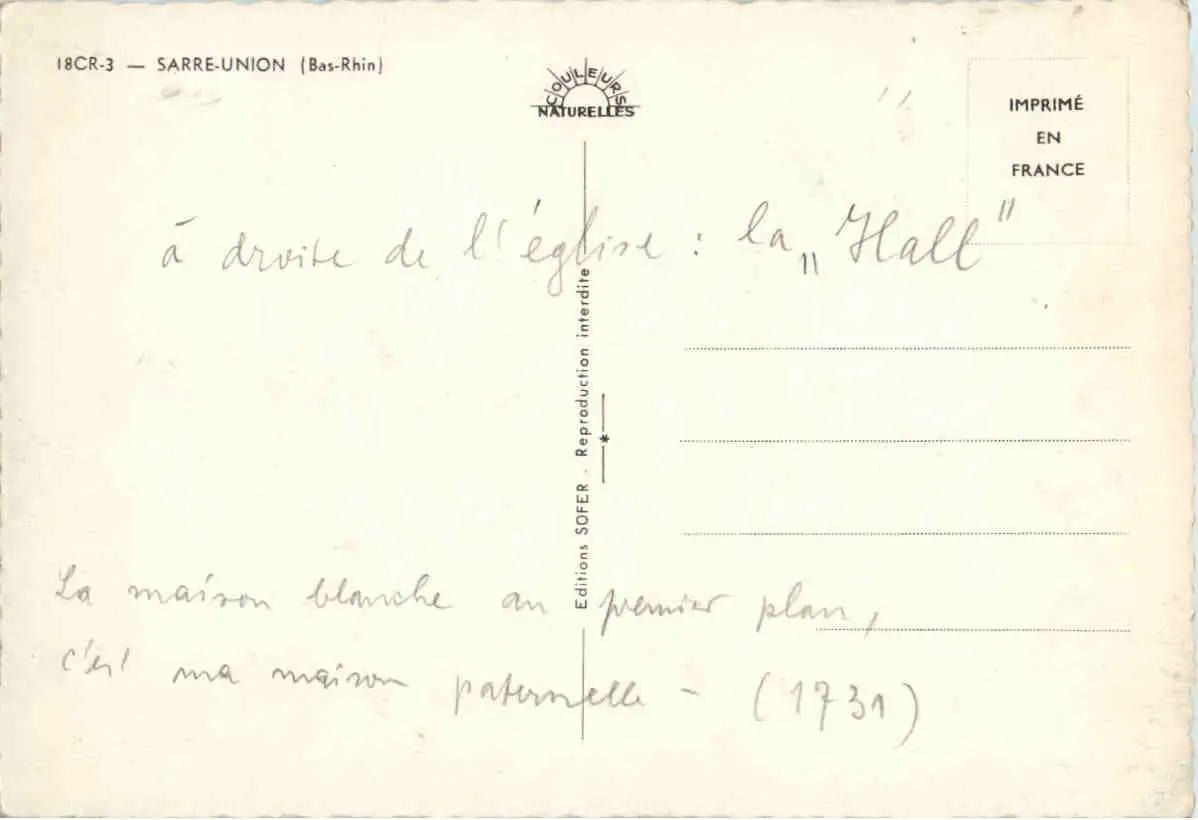 18CR-3 — SARRE-UNION (Bas-Rhin)
COULEURS
NATURELLES
IMPRIMÉ
EN
FRANCE
à droite de l'église : la „Hall"
Editions SOFER - Reproduction interdite
La maison blanche au premier plan,
c'est ma maison paternelle - (1731)